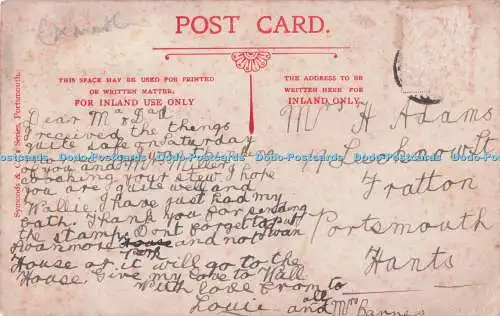 Exmouth
POST CARD.
THIS SPACE MAY BE USED FOR PRINTED
OR WRITTEN MATTER.
FOR INLAND USE ONLY
THE ADDRESS TO BE
WRITTEN HERE FOR
INLAND ONLY.
Symonds &
Series, Portsmouth.
Dear Ma & Dad
I received the things
quite safe on Saturday
of you and
your stew. I hope
you are quite well and
Willie. I have just had my
bath. Thank you for sending
the stamp. Dont forget to put
Swanmore
and not Swan
House or it will go to the
House. Give my love to Will
With love from
Louie and all
Mrs Barnes
Mrs H Adams
Lucknow St
Fratton
Portsmouth
Hants
Dodo-Postcards Dodo-Postcards Dodo-Postcards Dodo-Postcards Dodo-Postcards